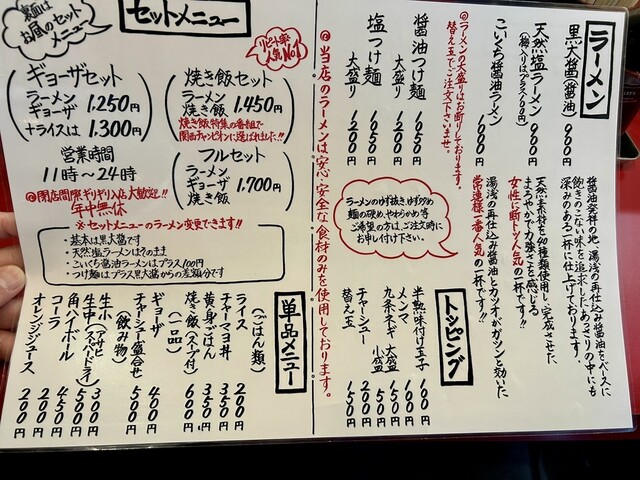 ラーメン
黒大醤(醤油) 900円
醤油発祥の地、湯浅の再仕込み醤油をベースに
飽きのこない味を追求したあっさりの中にも
深みのある一杯に仕上げております。
天然塩ラーメン 900円
(梅入りはプラス100円)
天然素材を40種類使用し、完成させた
まろやかで力強さを感じる
女性に断トツ人気の一杯です!!
こいくち醤油ラーメン 1000円
湯浅の再仕込み醤油とカツオがガツンと効いた
常連様一番人気の一杯です!!
◎ラーメンの大盛りはお断りしております。
替え玉でご注文下さいませ。
醤油つけ麺 1050円
大盛り 1200円
塩つけ麺 1050円
大盛り 1200円
ラーメンのゆず抜き、ゆず多め
麺の硬め、やわらかめ等
ご希望の方は、ご注文時に
お申し付け下さい。
トッピング
半熟味付け玉子 100円
メンマ 100円
九条ネギ 大盛 150円
小盛 100円
チャーシュー 200円
替え玉 150円
◎当店のラーメンは、安心・安全な食材のみを使用しております。
セットメニュー
裏面は
お昼のセット
メニュー
リピート率
人気No.1
焼き飯セット
ラーメン
焼き飯 1.450円
焼き飯特集の番組で
関西チャンピオンに選ばれました!!
ギョーザセット
ラーメン
ギョーザ 1.250円
+ライスは 1.300円
フルセット
ラーメン
ギョーザ
焼き飯 1.700円
営業時間
11時〜24時
◎閉店間際ギリギリ入店大歓迎!!
年中無休
※セットメニューのラーメン変更できます!!
・基本は黒大醤です
・天然塩ラーメンはそのまま
・こいくち醤油ラーメンはプラス100円
・つけ麺はプラス黒大醤からの差額分です
単品メニュー
(ごはん類)
ライス 200円
チャーマヨ丼 350円
黄身ごはん 350円
焼き飯(スープ付) 600円
(一品)
ギョーザ 400円
チャーシュー盛合せ 500円
(飲み物)
生小 300円
生中(アサヒスーパードライ) 500円
角ハイボール 450円
コーラ 200円
オレンジジュース 200円